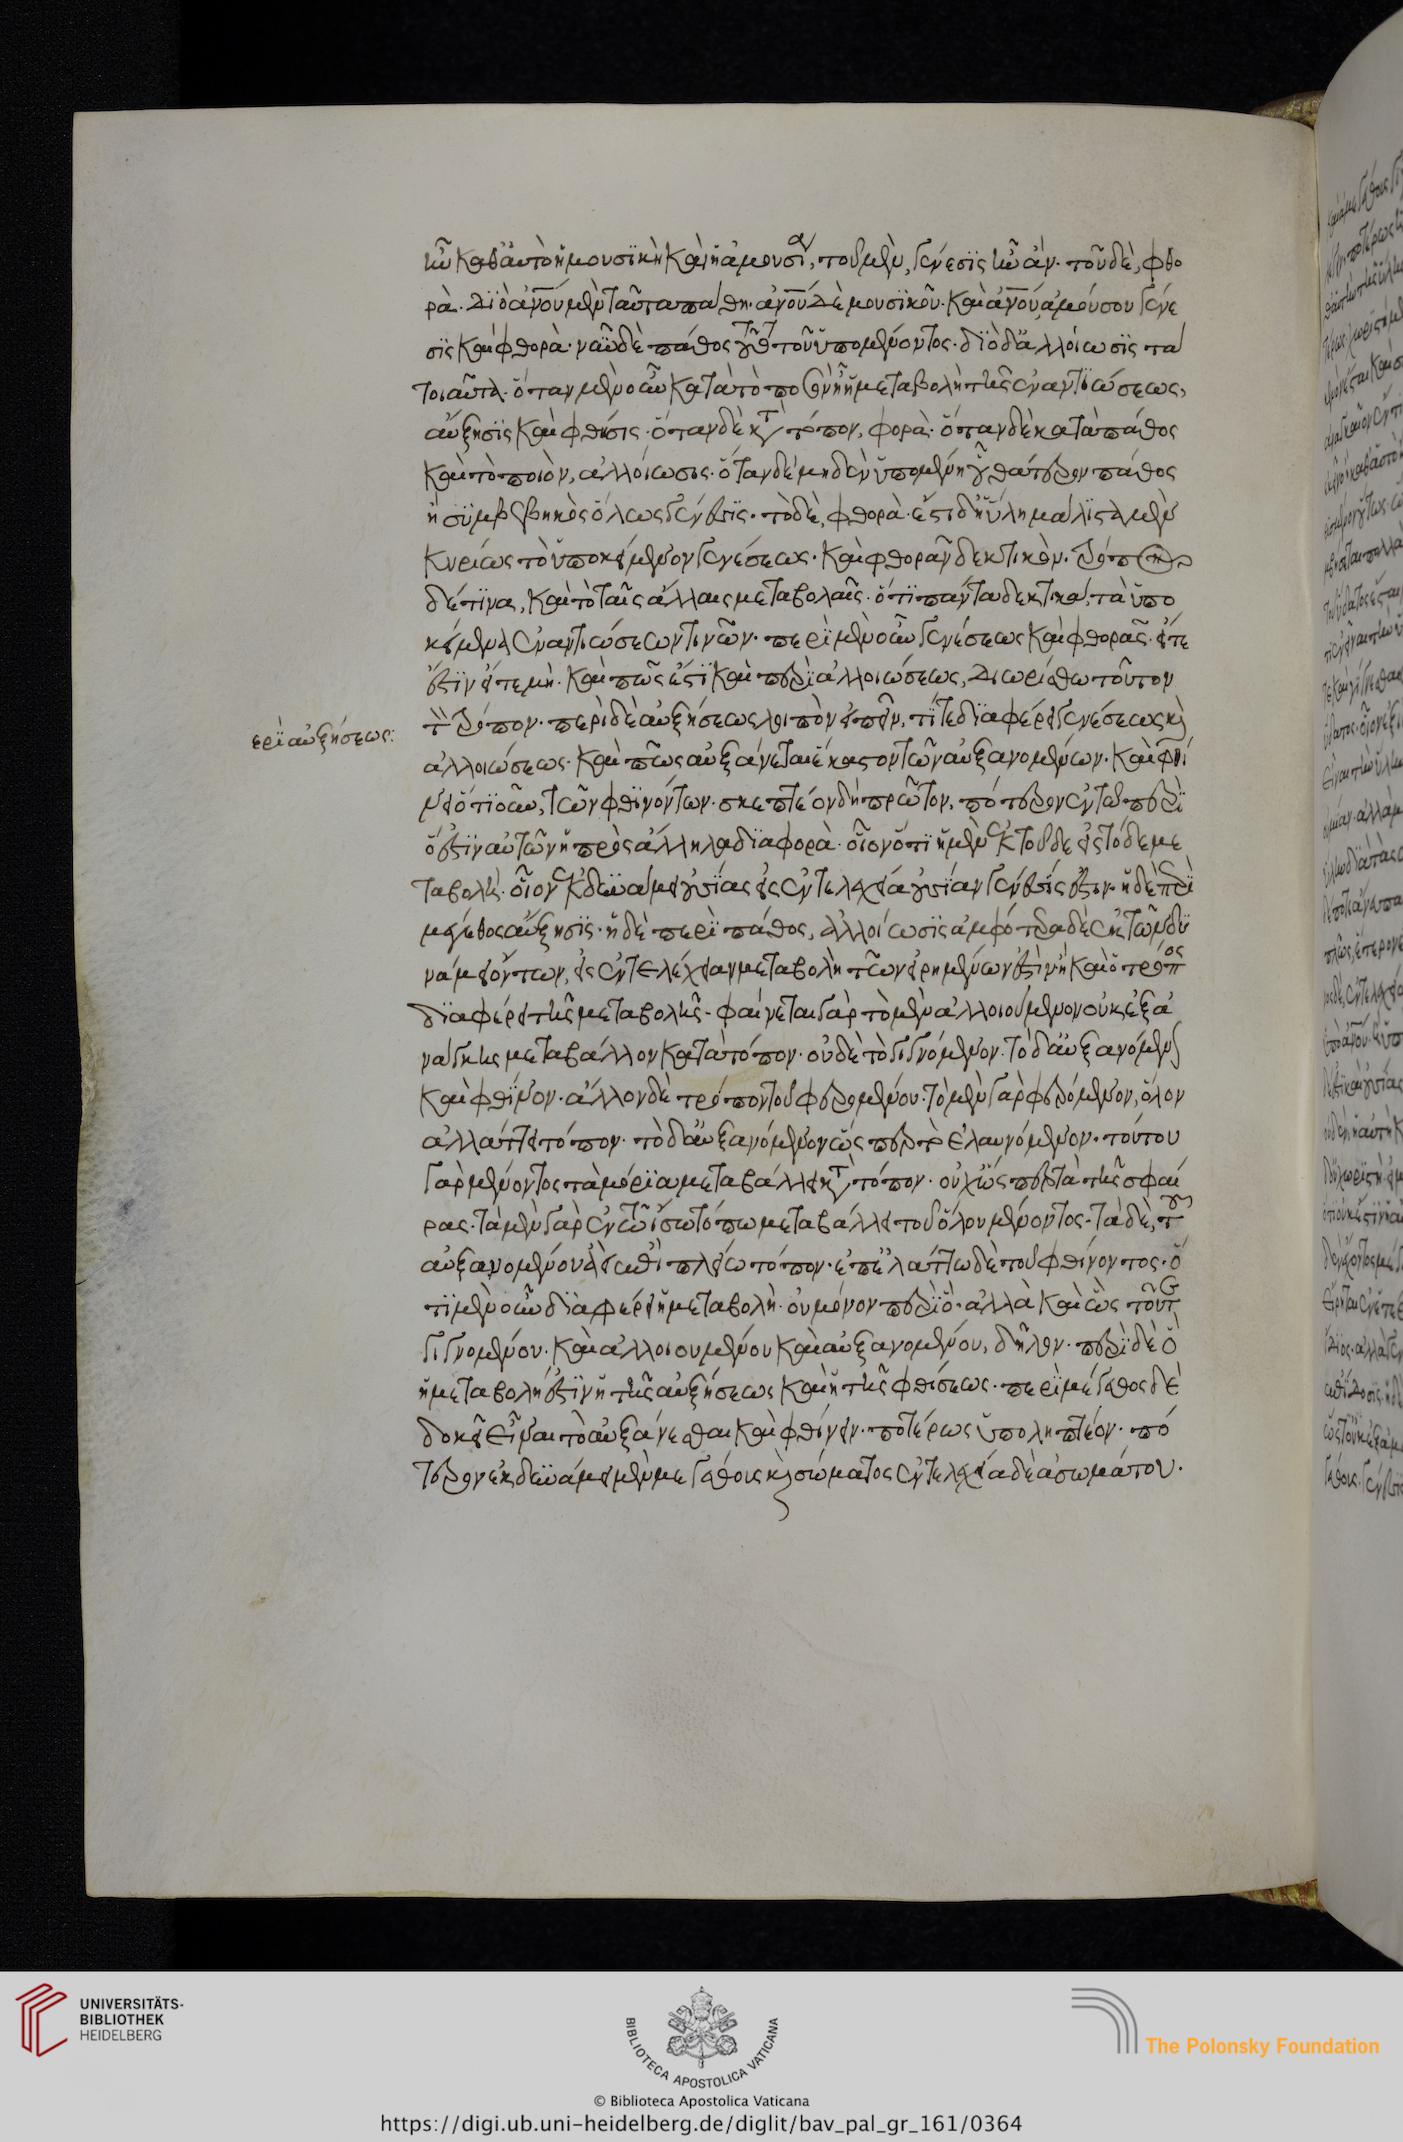 ἦν καθ' αὑτὸ ἡ μουσικὴ καὶ ἡ ἀμουσία, τοῦ μὲν, γένεσις ἦν ἄν. τοῦ δὲ, φθο
ρά. διὸ ἀνοῦ μὲν ταῦτα πάθη. ἀνοῦ δὲ μουσικοῦ. καὶ ἀνοῦ ἀμούσου γένε
σις καὶ φθορά. νῦν δὲ πάθος τοῦτο τοῦ ὑπομένοντος. διὸ δ' ἀλλοίωσις τὰ
τοιαῦτα. ὅταν μὲν οὖν κατὰ τὸ ποσὸν ᾖ ἡ μεταβολὴ τῆς ἐναντιώσεως,
αὔξησις καὶ φθίσις. ὅταν δὲ κατὰ τόπον, φορά. ὅταν δὲ κατὰ πάθος
καὶ τὸ ποιὸν, ἀλλοίωσις. ὅταν δὲ μηδὲν ὑπομένη οὗ θάτερον πάθος
ἢ συμβεβηκὸς ὅλως γένεσις. τὸ δὲ, φθορά. ἔστι δὴ ὕλη μάλιστα μὲν
κυρίως τὸ ὑποκείμενον γενέσεως. καὶ φθορᾶς δεκτικόν. τρόπον
δέ τινα, καὶ τὸ ταῖς ἄλλαις μεταβολαῖς. ὅτι πάντα δεκτικὰ, τὰ ὑπο
κείμενα ἐναντιώσεων τινῶν. περὶ μὲν οὖν γενέσεως καὶ φθορᾶς. εἴτε
ἔστιν εἴτε μή. καὶ πῶς ἔστι καὶ περὶ ἀλλοιώσεως, διωρίσθω τοῦτον
τὸν τρόπον. περὶ δὲ αὐξήσεως λοιπὸν εἰπεῖν, τί τε διαφέρει γενέσεως καὶ
ερὶ αὐξήσεως:
ἀλλοιώσεως. καὶ πῶς αὐξάνεται ἕκαστον τῶν αὐξανομένων. καὶ φθί
νει ὁτιοῦν, τῶν φθινόντων. σκεπτέον δὴ πρῶτον, πότερον ἐν τῷ περὶ
ὅ ἐστιν αὐτῶν ἡ πρὸς ἄλληλα διαφορά. οἷον ὅτι ἡ μὲν ἐκ τοῦδε εἰς τόδε με
ταβολή. οἷον ἐκ δυνάμει οὐσίας εἰς ἐντελεχείᾳ οὐσίαν γένεσίς ἐστιν. ἡ δὲ περὶ
μέγεθος αὔξησις. ἡ δὲ περὶ πάθος, ἀλλοίωσις ἀμφότερα δὲ ἐκ τῶν δυ
νάμει ὄντων, εἰς ἐντελέχειαν μεταβολὴ τῶν εἰρημένων ἐστὶν ἢ καὶ ὁ τρόπος
διαφέρει τῆς μεταβολῆς. φαίνεται γὰρ τὸ μὲν ἀλλοιούμενον οὐκ ἐξ ἀ
νάγκης μεταβάλλον κατὰ τόπον. οὐδὲ τὸ γιγνόμενον. τὸ δ' αὐξανόμενον
καὶ φθῖνον. ἄλλον δὲ τρόπον τοῦ φερομένου. τὸ μὲν γὰρ φερόμενον, ὅλον
ἀλλάττει τόπον. τὸ δ' αὐξανόμενον ὥσπερ τὸ ἐλαυνόμενον. τούτου
γὰρ μένοντος τὰ μόρια μεταβάλλει κατὰ τόπον. οὐχ ὥσπερ τὰ τῆς σφαί
ρας. τὰ μὲν γὰρ ἐν τῷ ἴσῳ τόπῳ μεταβάλλει τοῦ ὅλου μένοντος. τὰ δὲ, τοῦ
αὐξανομένου ἀεὶ ἐπὶ πλείω τόπον. ἐπ' ἐλάττω δὲ τοῦ φθίνοντος. ὅ
τι μὲν οὖν διαφέρει ἡ μεταβολὴ. οὐ μόνον περὶ ὅ. ἀλλὰ καὶ ὡς τοῦ τε
γιγνομένου. καὶ ἀλλοιουμένου καὶ αὐξανομένου, δῆλον. περὶ δὲ ὃ
ἡ μεταβολή ἐστιν ἡ τῆς αὐξήσεως καὶ ἡ τῆς φθίσεως. περὶ μέγεθος δὲ
δοκεῖ εἶναι τὸ αὐξάνεσθαι καὶ φθίνειν. ποτέρως ὑποληπτέον. πό
τερον ἐκ δυνάμει μὲν μεγέθους καὶ σώματος ἐντελεχείᾳ δὲ ἀσωμάτου.
UNIVERSITÄTS-
BIBLIOTHEK
HEIDELBERG
BIBLIOTECA APOSTOLICA VATICANA
© Biblioteca Apostolica Vaticana
The Polonsky Foundation
https://digi.ub.uni-heidelberg.de/diglit/bav_pal_gr_161/0364